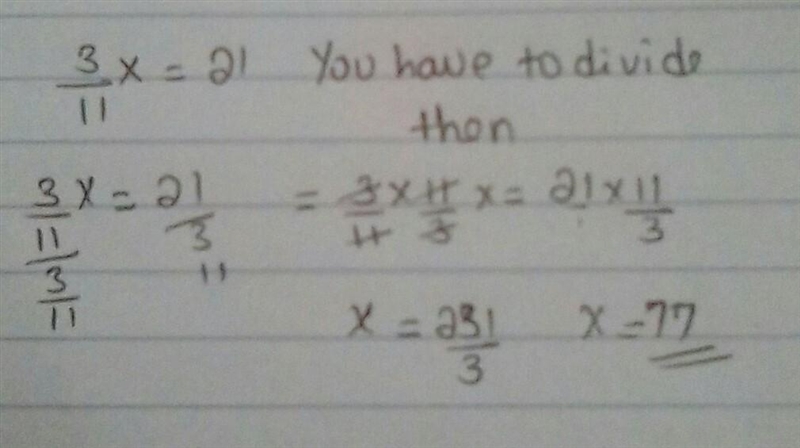 3/11 x = 21 You have to divide
then
3/11 / 3/11 x = 21 / 3/11 = 3/11 × 11/3 x = 21 × 11/3
x = 231/3 x = 77